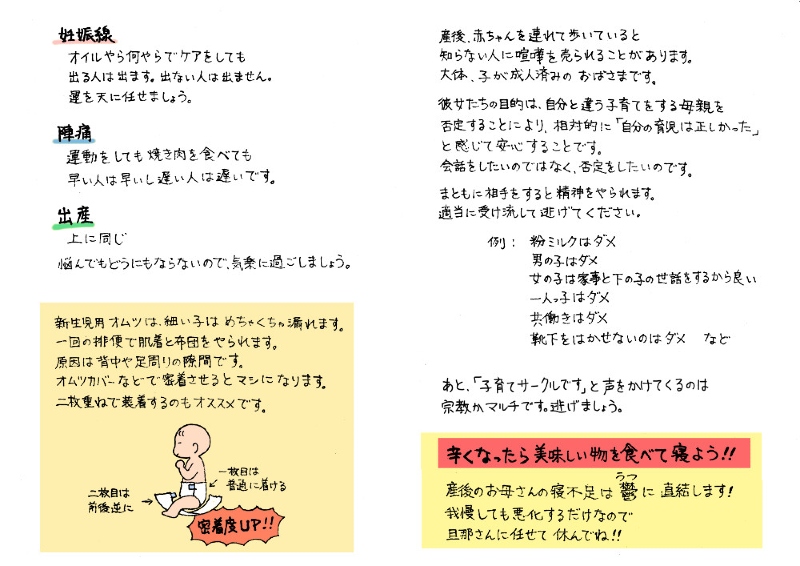 妊娠線
オイルやら何やらでケアをしても
出る人は出ます。出ない人は出ません。
運を天に任せましょう。
陣痛
運動をしても焼き肉を食べても
早い人は早いし遅い人は遅いです。
出産
上に同じ
悩んでもどうにもならないので、気楽に過ごしましょう。
新生児用オムツは、細い子はめちゃくちゃ漏れます。
一回の排便で肌着と布団をやられます。
原因は背中や足周りの隙間です。
オムツカバーなどで密着させるとマシになります。
二枚重ねで装着するのもオススメです。
一枚目は
普通に着ける
二枚目は
前後逆に
密着度UP!!
産後、赤ちゃんを連れて歩いていると
知らない人に喧嘩を売られることがあります。
大体、子が成人済みのおばさまです。
彼女たちの目的は、自分と違う子育てをする母親を
否定することにより、相対的に「自分の育児は正しかった」
と感じて安心することです。
会話をしたいのではなく、否定をしたいのです。
まともに相手をすると精神をやられます。
適当に受け流して逃げてください。
例： 粉ミルクはダメ
男の子はダメ
女の子は家事と下の子の世話をするから良い
一人っ子はダメ
共働きはダメ
靴下をはかせないのはダメ など
あと、「子育てサークルです」と声をかけてくるのは
宗教かマルチです。逃げましょう。
辛くなったら美味しい物を食べて寝よう!!
うつ
産後のお母さんの寝不足は鬱に直結します!
我慢しても悪化するだけなので
旦那さんに任せて休んでね!!